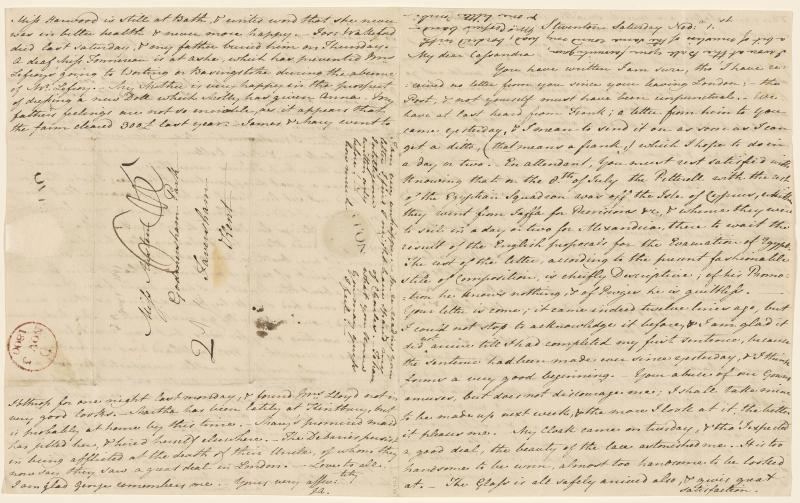 Steventon Saturday Nov: 1st
My dear Cassandra
You have written I am sure, tho' I have re-
ceived no letter from you since your leaving London; - the
Post, & not yourself must have been unpunctual. - We
have at last heard from Frank; a letter from him to You
came yesterday, & I mean to send it on as soon as I can
get a ditto, (that means a frank,) which I hope to do in
a day or two. - En attendant, You must rest satisfied with
knowing that on the 8th of July the Petterell with the rest
of the Egyptian Squadron was off the Isle of Cyprus, whither
they went from Jaffa for Provisions &c., & whence they were
to sail in a day or two for Alexandria, there to wait the
result of the English proposals for the Evacuation of Egypt.
The rest of the letter, according to the present fashionable
stile of Composition, is cheifly Descriptive; of his Promo-
-tion he knows nothing, & of Prizes he is guiltless. -
Your letter is come; it came indeed twelve lines ago, but
I could not stop to acknowledge it before, & I am glad it
did not arrive till I had completed my first sentence, because
the sentence had been made ever since yesterday, & I think
forms a very good beginning. - Your abuse of our Gowns
amuses, but does not discourage me; I shall take mine
to be made up next week, & the more I look at it, the better
it pleases me. - My Cloak came on tuesday, & tho' I expected
a good deal, the beauty of the lace astonished me. - It is too
handsome to be worn, almost too handsome to be looked
at. - The Glass is all safely arrived also, & gives great
satisfaction.
Miss Harwood is still at Bath, & writes word that she never
was in better health & never more happy. - Jos: Wakeford
died last Saturday, & my father buried him on Thursday.
A deaf Miss Fonnereau is at Ashe, which has prevented Mrs
Lefroy's going to Worting or Basingstoke during the absence
of Mr. Lefroy. - My Mother is very happy in the prospect
of dressing a new Doll which Molly has given Anna. My
father's feelings are not so enviable, as it appears that
the farm cleared 300£ last year. - James & Mary went to
Miss Austen
Godmersham Park
Faversham
Kent
2
NOV 3
1800
Ibthrop for one night last monday, & found Mrs Lloyd not in
very good looks. - Martha has been lately at Kintbury, but
is probably at home by this time. - Mary's promised maid
has jilted her, & hired herself elsewhere. - The Debaries persist
in being afflicted at the death of their Uncle, of whom they
now say they saw a great deal in London. - Love to all. -
I am glad George remembers me. - Yours very affec:tely
J.A.